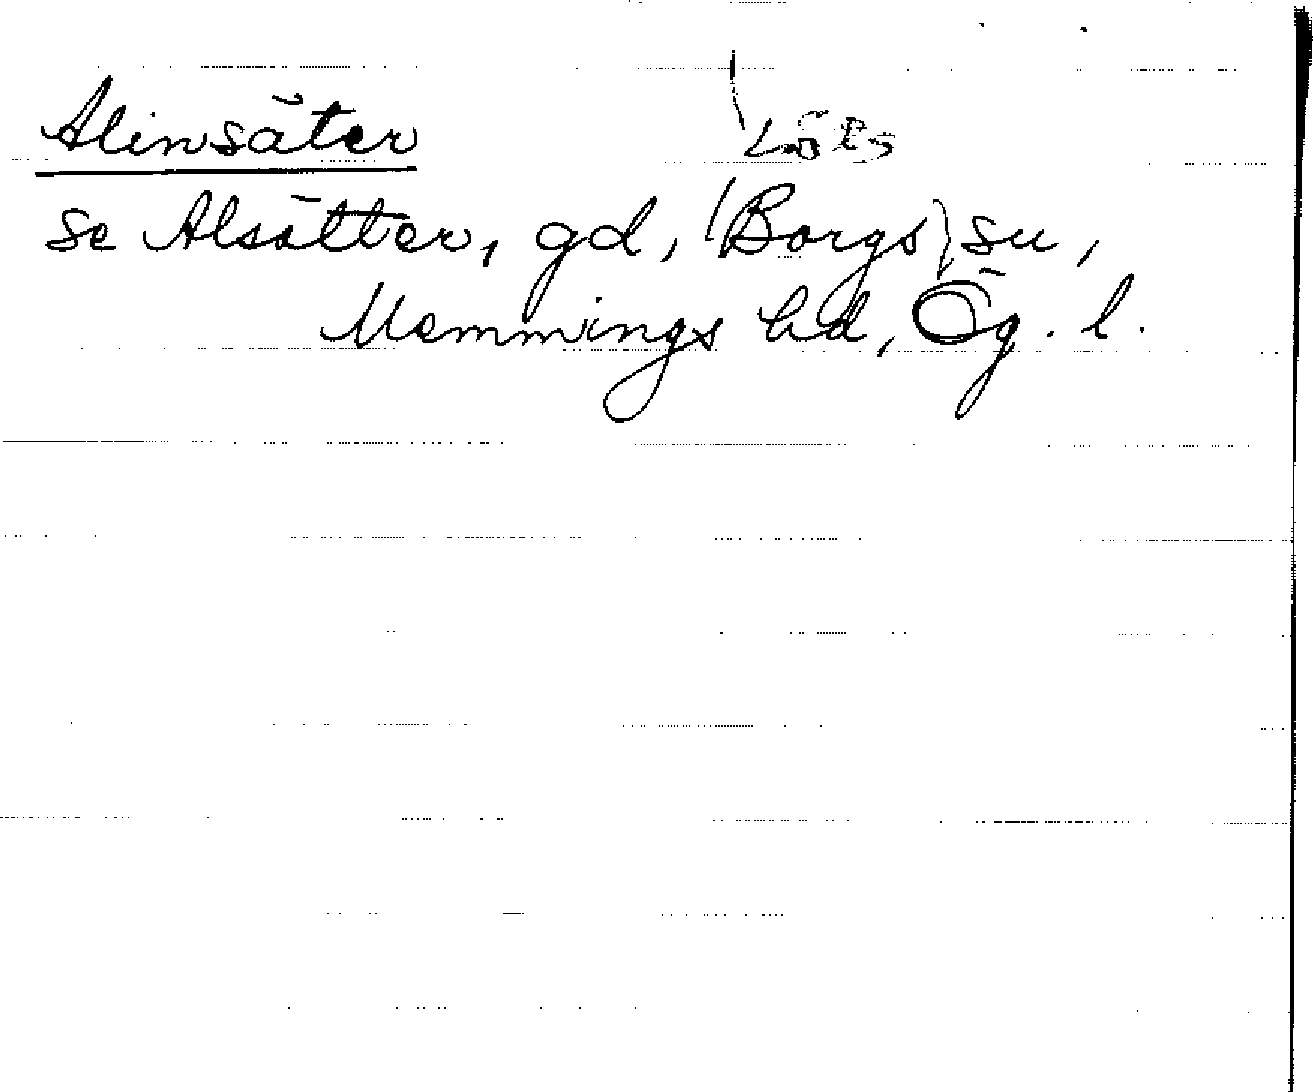 Alinsäter
Löts
se Alsätter, gd, (Borgs) sn,
Memmings hd, Ög. l.